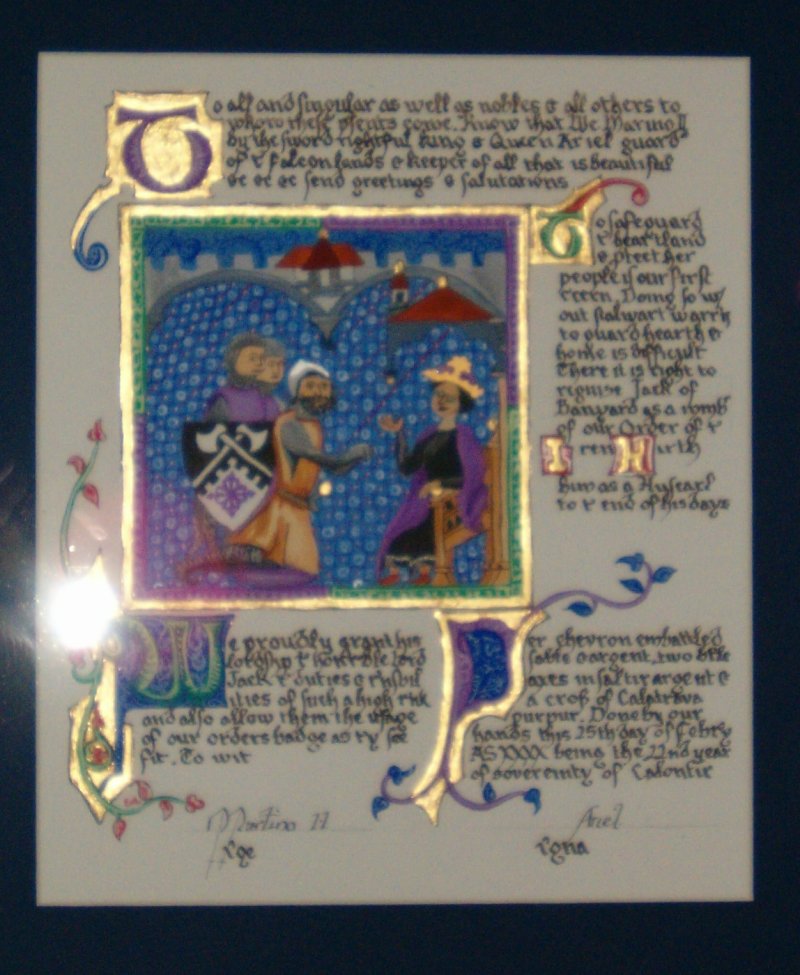 To all and singular as well as nobles & all others to
whom these psents come. Know that We Martino II
by the sword rightful king & Queen Ariel guard
of r falconlands & keeper of all that is beautiful
&c &c &c send greetings & salutations
To safeguard
r heartland
& ptect her
people is our first
Doing so w/
out stalwart
to guard hearth &
home is difficult
There it is right to
Jack of
Banyard as a
of our Order of r
Iren Hirth
him as a
to r end of his days
We proudly grant his
lordship r lord
Jack r duties &
ilities of such a high
and also allow them the usage
of our orders badge as
fit. To wit
Per chevron embattled
sable & argent, two
axes in saltir argent &
a crofs of Calatrava
purpur. Done by our
hands this 25th day of Febry
AS XXXX being the 22nd year
of sovereinty of Calontir
Martino II
Ariel
rge
rgna